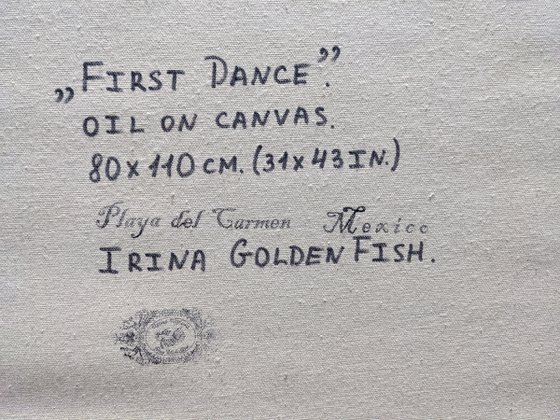 „FIRST DANCE”.
OIL ON CANVAS.
80x110 CM. (31x43 IN.)
Playa del Carmen Mexico
IRINA GOLDEN FISH.